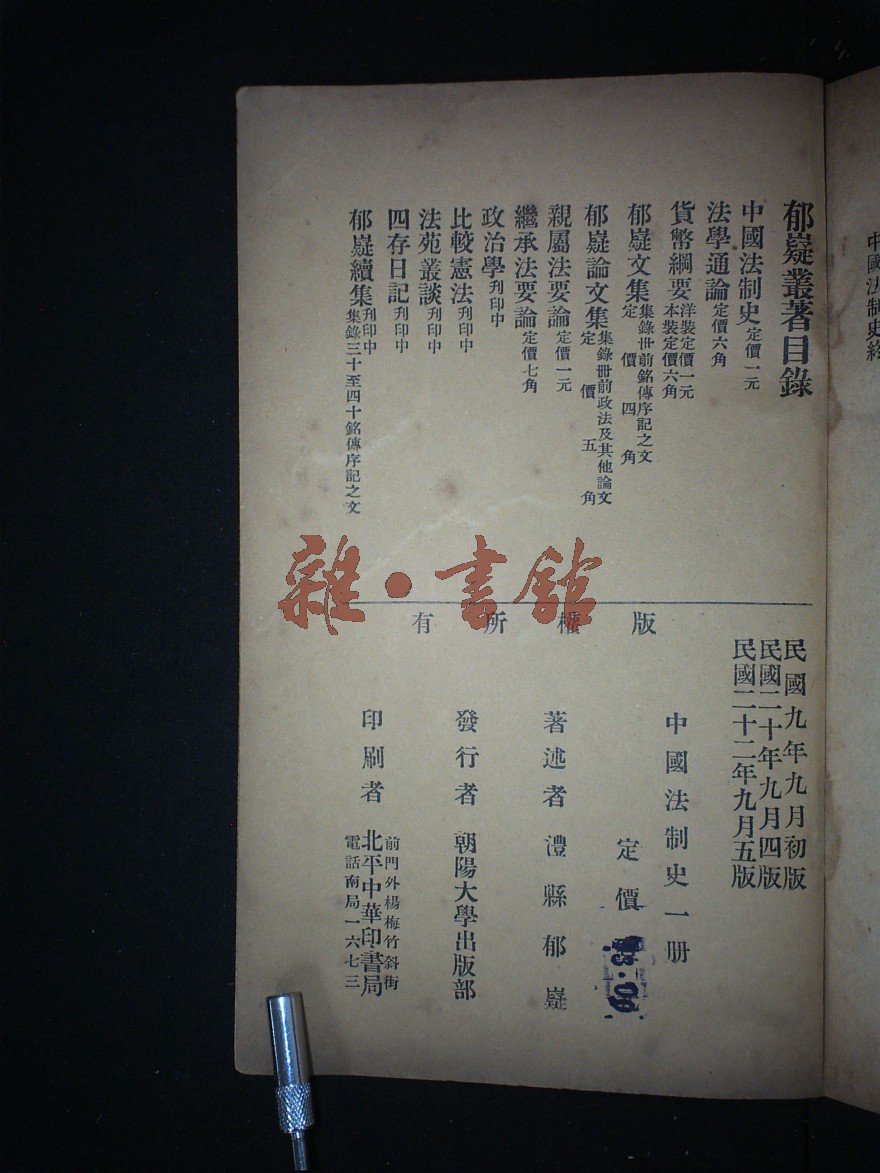 郁嶷叢著目錄
中國法制史 定價一元
法學通論 定價六角
貨幣綱要 洋裝定價一元 本裝定價六角
郁嶷文集 集錄卅前銘傳序記之文 定價四角
郁嶷論文集 集錄卌前政法及其他論文 定價五角
親屬法要論 定價一元
繼承法要論 定價七角
政治學 刋印中
比較憲法 刋印中
法苑叢談 刋印中
四存日記 刋印中
郁嶷續集 刋印中 集錄三十至四十銘傳序記之文
雜·書館
版權所有
民國九年九月初版
民國二十年九月四版
民國二十二年九月五版
中國法制史一册
定價
著述者 澧縣郁嶷
發行者 朝陽大學出版部
印刷者 北平中華印書局
前門外楊梅竹斜街
電話南局一六七三
中國法制史終